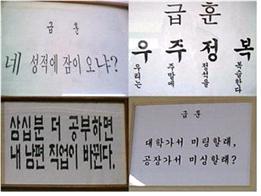 급 훈
네 성적에 잠이 오냐?
급훈
우주정복
우리는 주말에 정석을 복습한다
삼십분 더 공부하면
내 남편 직업이 바뀐다.
급 훈
대학가서 미팅할래,
공장가서 미싱할래?